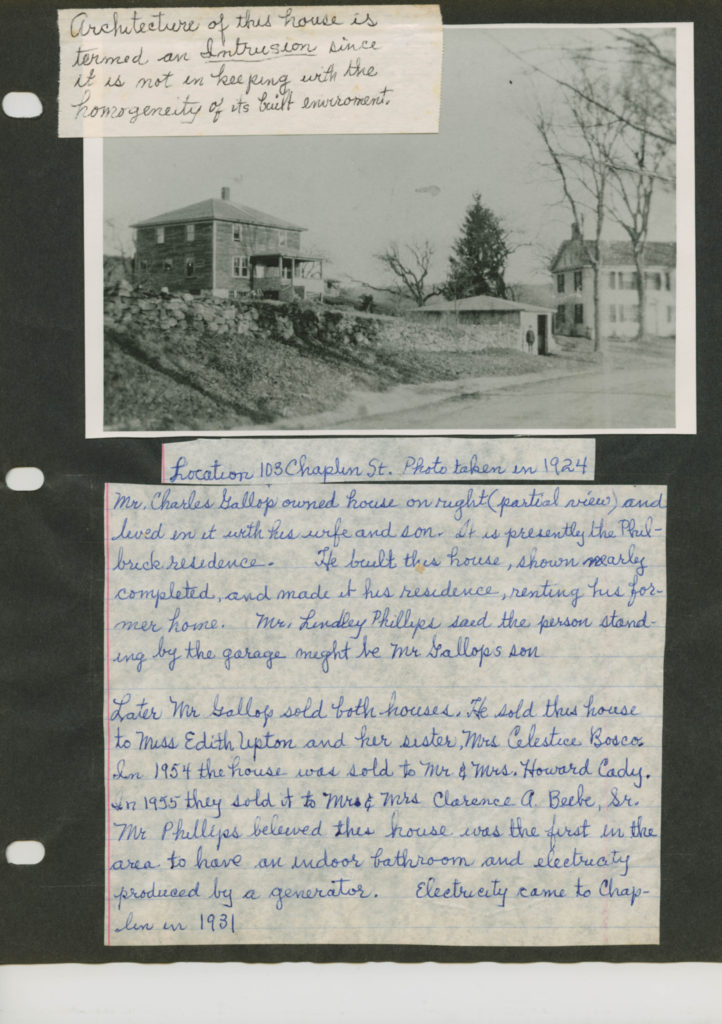 Architecture of this house is
termed an Intrusion since
it is not in keeping with the
homogeneity of its built enviroment.
Location 103 Chaplin St. Photo taken in 1924
Mr. Charles Gallop owned house on right (partial view) and
lived in it with his wife and son. It is presently the Phil-
brick residence. He built this house, shown nearly
completed, and made it his residence, renting his for-
mer home. Mr. Lindley Phillips said the person stand-
ing by the garage might be Mr Gallops son
Later Mr Gallop sold both houses. He sold this house
to Miss Edith Upton and her sister, Mrs Celestice Bosco.
In 1954 the house was sold to Mr & Mrs. Howard Cady.
In 1955 they sold it to Mrs & Mrs Clarence A. Beebe, Sr.
Mr Phillips believed this house was the first in the
area to have an indoor bathroom and electricity
produced by a generator. Electricity came to Chap-
lin in 1931